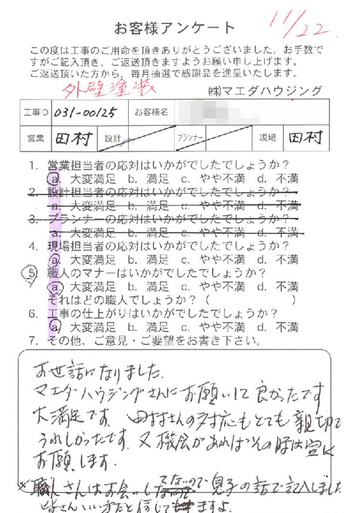 お客様アンケート
11/22
この度は工事のご用命を頂きありがとうございました。お手数で
すがご記入頂き、ご返送頂きますようお願い申し上げます。
ご返送頂いた方から、毎月抽選で感謝品を進呈いたします。
外壁塗装
㈱マエダハウジング
工事ID 031-00125 お客様名
営業 田村 設計 プランナー 現場 田村
1. 営業担当者の応対はいかがでしたでしょうか?
a. 大変満足 b. 満足 c. やや不満 d. 不満
2. 設計担当者の応対はいかがでしたでしょうか?
a. 大変満足 b. 満足 c. やや不満 d. 不満
3. プランナーの応対はいかがでしたでしょうか?
a. 大変満足 b. 満足 c. やや不満 d. 不満
4. 現場担当者の応対はいかがでしたでしょうか?
a. 大変満足 b. 満足 c. やや不満 d. 不満
5. 職人のマナーはいかがでしたでしょうか?
a. 大変満足 b. 満足 c. やや不満 d. 不満
それはどの職人でしょうか?( )
6. 工事の仕上がりはいかがでしたでしょうか?
a. 大変満足 b. 満足 c. やや不満 d. 不満
7. その他、ご意見・ご要望をお書き下さい。
お世話になりました。
マエダハウジングさんにお願いして良かったです
大満足です。田村さんの対応もとても親切で
うれしかったです。又機会があればその時は宜しく
お願します。
※職人さんはお会いしてないので息子の話で記入しました
皆さんいい方だと信じてますよ。